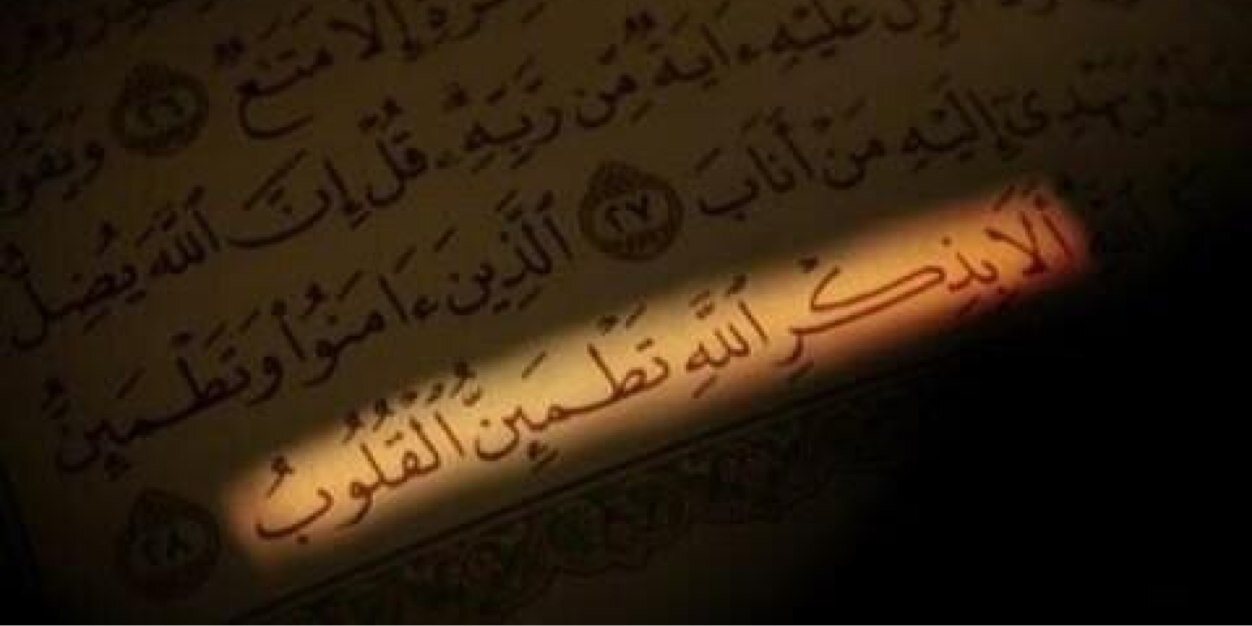 إِلَّا مَتَـٰعٌ ٢٦ وَيَقُو
أُنزِلَ عَلَيْهِ ءَايَةٌ مِّن رَّبِّهِۦ قُلْ إِنَّ ٱللَّهَ يُضِلُّ
وَيَهْدِىٓ إِلَيْهِ مَنْ أَنَابَ ٢٧ ٱلَّذِينَ ءَامَنُوا۟ وَتَطْمَئِنُّ
أَلَا بِذِكْرِ ٱللَّهِ تَطْمَئِنُّ ٱلْقُلُوبُ ٢٨